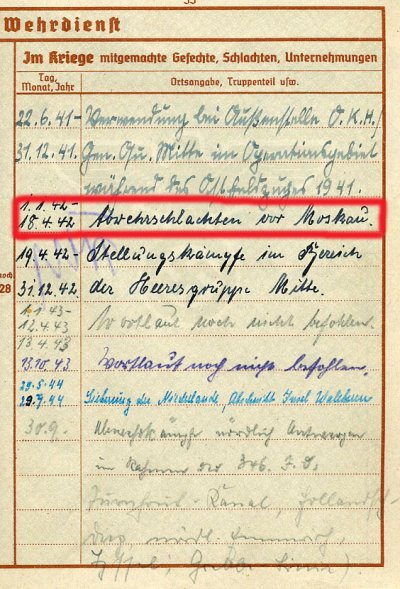 33
Wehrdienst
Im Kriege mitgemachte Gefechte, Schlachten, Unternehmungen
Tag, Monat, Jahr
Ortsangabe, Truppenteil usw.
22.6.41- Verwendung bei Außenstelle O.K.H./
31.12.41. Gen. Qu. Mitte im Operationsgebiet
während des Ostfeldzuges 1941.
1.1.42-
18.4.42 Abwehrschlachten vor Moskau.
19.4.42- Stellungskämpfe im Bereich
31.12.42 der Heeresgruppe Mitte.
1.1.43-
12.4.43 Wortlaut noch nicht befohlen.
13.4.43
13.10.43 Wortlaut noch nicht befohlen.
29.5.44
29.9.44 Sicherung der Niederlande, Abschnitt Insel Walcheren
30.9. Abwehrkämpfe nördlich Antwerpen
im Rahmen der 346. J.D.
Turnhout-Kanal, Holland
nördl. Emmerich,
noch
28